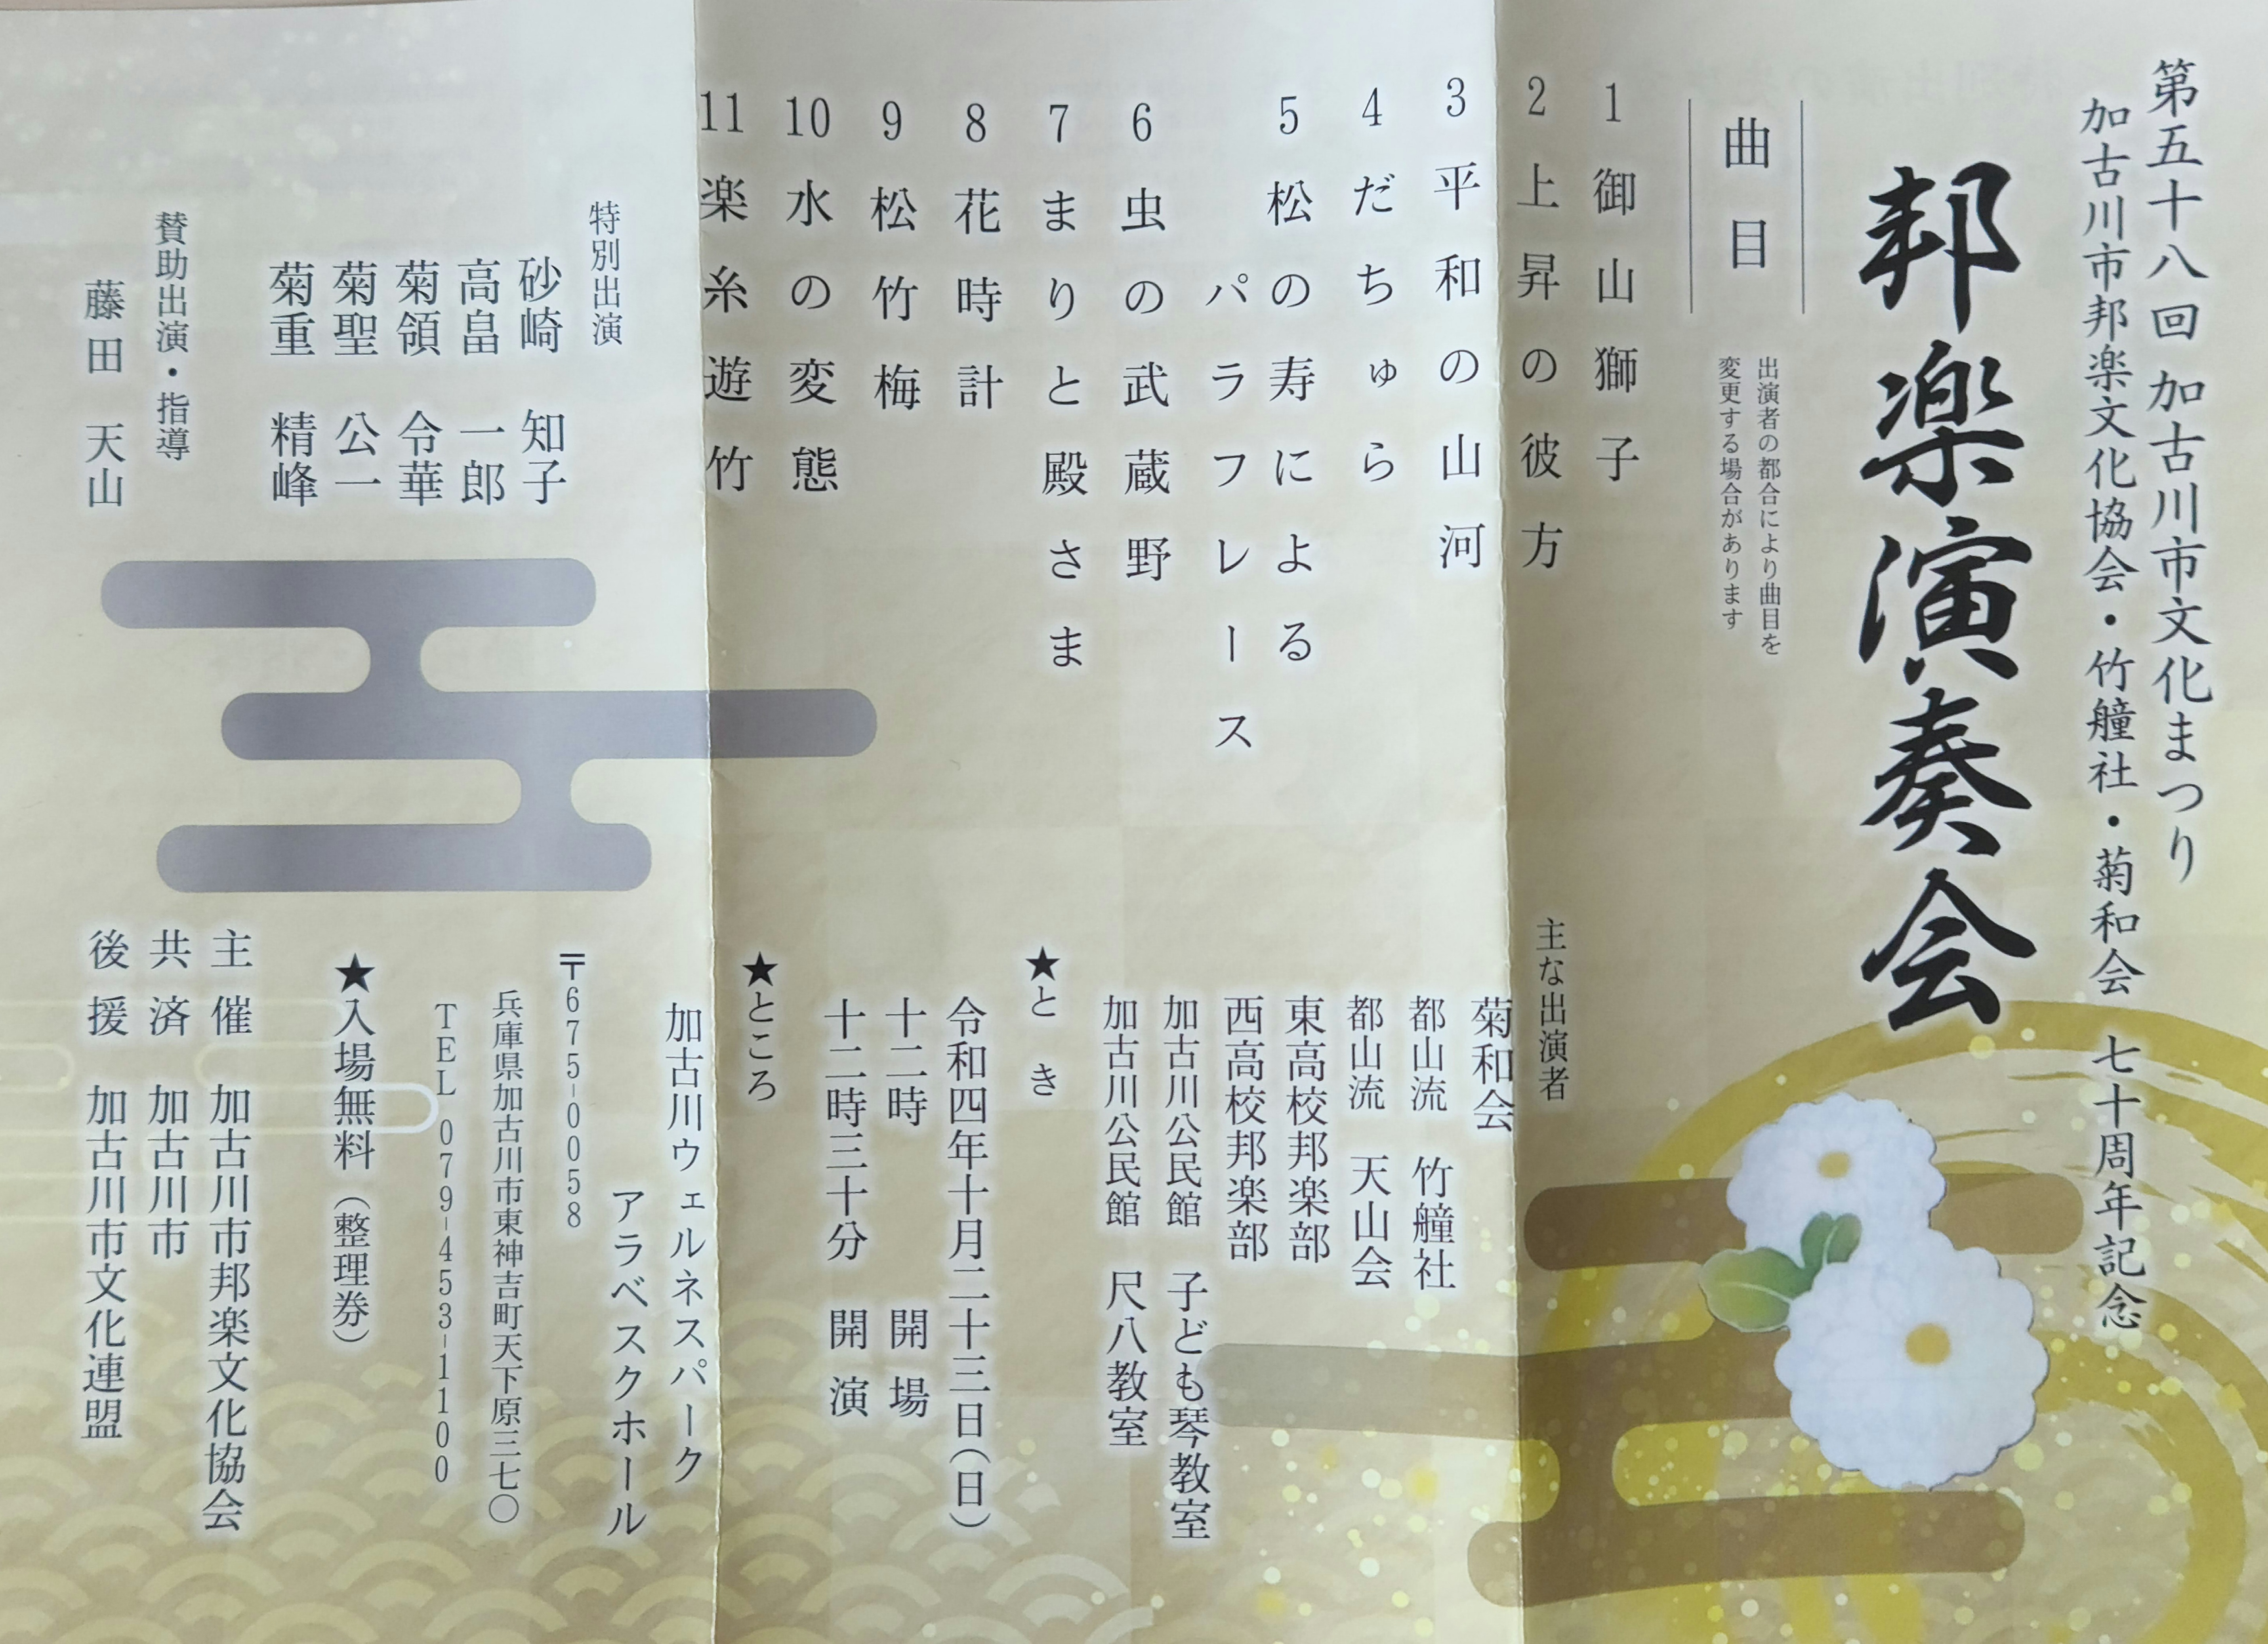 第五十八回 加古川市文化まつり
加古川市邦楽文化協会・竹艟社・菊和会 七十周年記念
邦楽演奏会
曲目
出演者の都合により曲目を
変更する場合があります
1 御山獅子
2 上昇の彼方
3 平和の山河
4 だちゅら
5 松の寿による
パラフレーース
6 虫の武蔵野
7 まりと殿さま
8 花時計
9 松竹梅
10 水の変態
11 楽糸遊竹
主な出演者
菊和会
都山流 竹艟社
都山流 天山会
東高校邦楽部
西高校邦楽部
加古川公民館 子ども琴教室
加古川公民館 尺八教室
★とき
令和四年十月二十三日（日）
十二時 開場
十二時三十分 開演
★ところ
加古川ウェルネスパーク
アラベスクホール
〒675-0058
兵庫県加古川市東神吉町天下原三七〇
TEL 079-453-1100
★入場無料（整理券）
特別出演
砂崎 知子
高畠 一郎
菊領 令華
菊聖 公一
菊重 精峰
賛助出演・指導
藤田 天山
主催 加古川市邦楽文化協会
共済 加古川市
後援 加古川市文化連盟